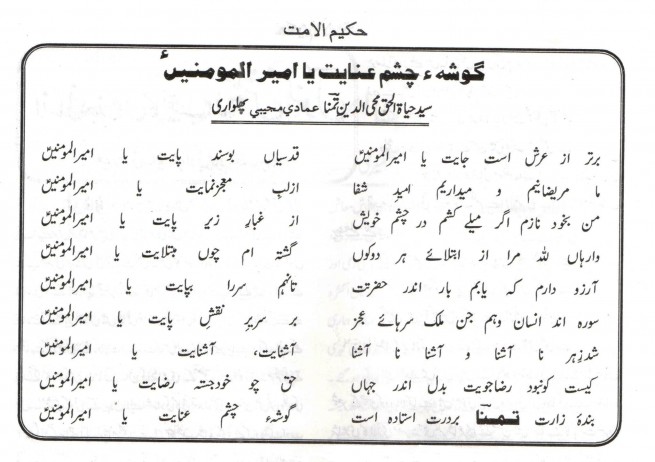 حکیم الامت
گوشہء چشم عنایت یا امیر المومنیںؑ
سید حیاۃ الحق محی الدین تمنا عمادی مجیبی پھلواری
برتر از عرش است جایت یا امیرالمومنیںؑ قدسیاں بوسند پایت یا امیرالمومنیںؑ
ما مریضانیم و میداریم امیدِ شفا ازلبِ معجزنمایت یا امیرالمومنیںؑ
من بخود نازم اگر میلے کشم در چشم خویش از غبارِ زیر پایت یا امیرالمومنیںؑ
وارہاں للہ مرا از ابتلائے ہر دوکوں گشتہ ام چوں مبتلایت یا امیرالمومنیںؑ
آرزو دارم کہ یابم بار اندر حضرتت تانہم سررا بپایت یا امیرالمومنیںؑ
سورہ اند انسان وہم جن ملک سرہائے عجز بر سریرِ نقشِ پایت یا امیرالمومنیںؑ
شدزہر نا آشنا و آشنا نا آشنا آشنایت، آشنایت یا امیرالمومنیںؑ
کیست کونبود رضاجویت بدل اندر جہاں حق چو خودجستہ رضایت یا امیرالمومنیںؑ
بندۂ زارت تمنا بردرت استادہ است گوشہء چشم عنایت یا امیرالمومنیںؑ